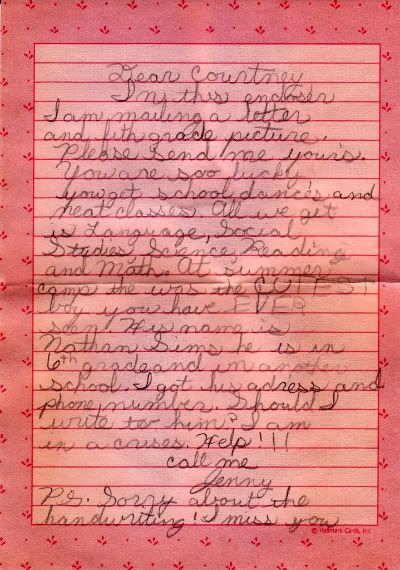 Dear Courtney
In this encloser
I am mailing a letter
and fith grade picture.
Please Send me your's.
You are soo lucky
you get school dances and
neat classes. All we get
is Language, Social
Studies Science, Reading
and Math. At summer
camp the was the CUTEST
boy you have EVER
seen His name is
Nathan Sims he is in
6th grade and in another
school. I got his adress and
phone number. Should I
write to him? I am
in a crises. Help!!!
call me
Jenny
P.S. Sorry about the
handwriting! I miss you
© Hallmark Cards, Inc.